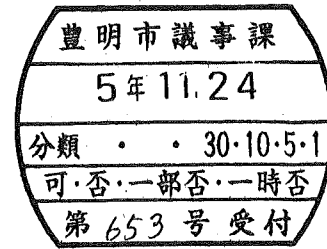 豊明市議事課
5年11.24
分類 ・ ・ 30・10・5・1
可・否・一部否・一時否
第653号受付